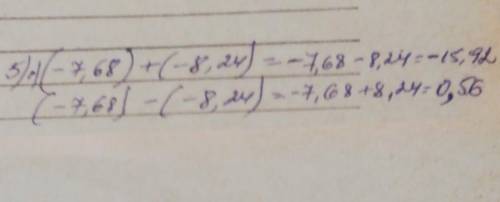 5) (-7,68) + (-8,24) = -7,68 - 8,24 = -15,92
(-7,68) - (-8,24) = -7,68 + 8,24 = 0,56